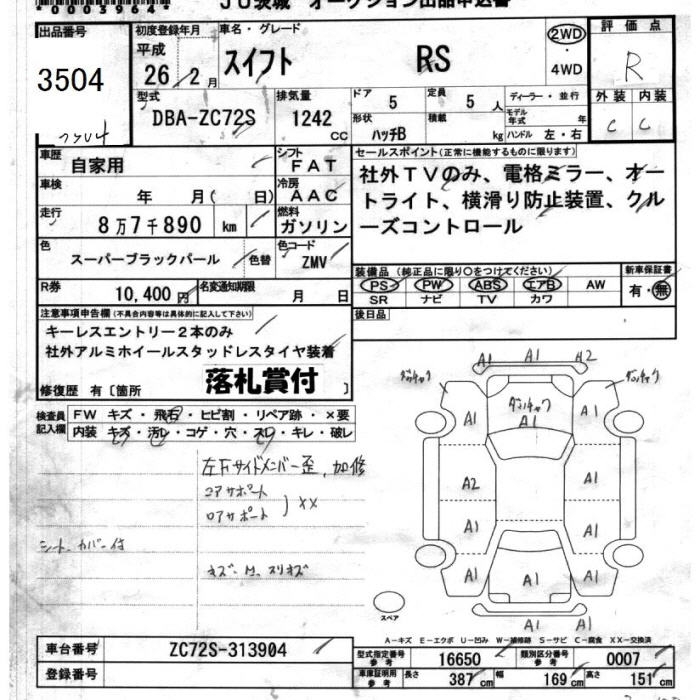 0003964
JU茨城 オークション出品申込書
出品番号 初度登録年月 車名・グレード 2WD ・ 4WD 評価点
3504 平成 26年 2月 スイフト RS R
型式 DBA-ZC72S 排気量 1242 CC ドア 5 定員 5 人 ディーラー・並行 外装 内装
形状 ハッチB 積載 kg モデル年式 年 ハンドル 左・右 C C
車歴 自家用 シフト FAT セールスポイント(正常に機能するものに限ります)
車検 年 月( 日) 冷房 AAC 社外TVのみ、電格ミラー、オー
走行 8万7千890 km 燃料 ガソリン トライト、横滑り防止装置、クル
ーズコントロール
色 スーパーブラックパール 色替 色コード ZMV
装備品 (純正品に限り○をつけてください) 新車保証書
R券 10,400円 名変通知期限 月 日 PS PW ABS エアB AW 有・無
SR ナビ TV カワ
注意事項申告欄(不具合内容等は具体的に記入して下さい) 後日品
キーレスエントリー2本のみ
社外アルミホイールスタッドレスタイヤ装着
修復歴 有〔箇所 落札賞付 〕
検査員記入欄 FW キズ・飛石・ヒビ割・リペア跡・×要
内装 キズ・汚レ・コゲ・穴・スレ・キレ・破レ
左Fサイドメンバー歪,加修
コアサポート
ロアサポート ××
シートカバー付
キズ・凹 スリキズ
A1 A1 A2
A1 A1
A2 A1
A1 A1
A1 A1 A1
A1 A1 A1
スペア
A-キズ E-エクボ U-凹み W-補修跡 S-サビ C-腐食 XX-交換済
車台番号 ZC72S-313904 型式指定番号 参考 16650 類別区分番号 参考 0007
登録番号 車庫証明用 参考 長さ 387cm 幅 169cm 高さ 151cm